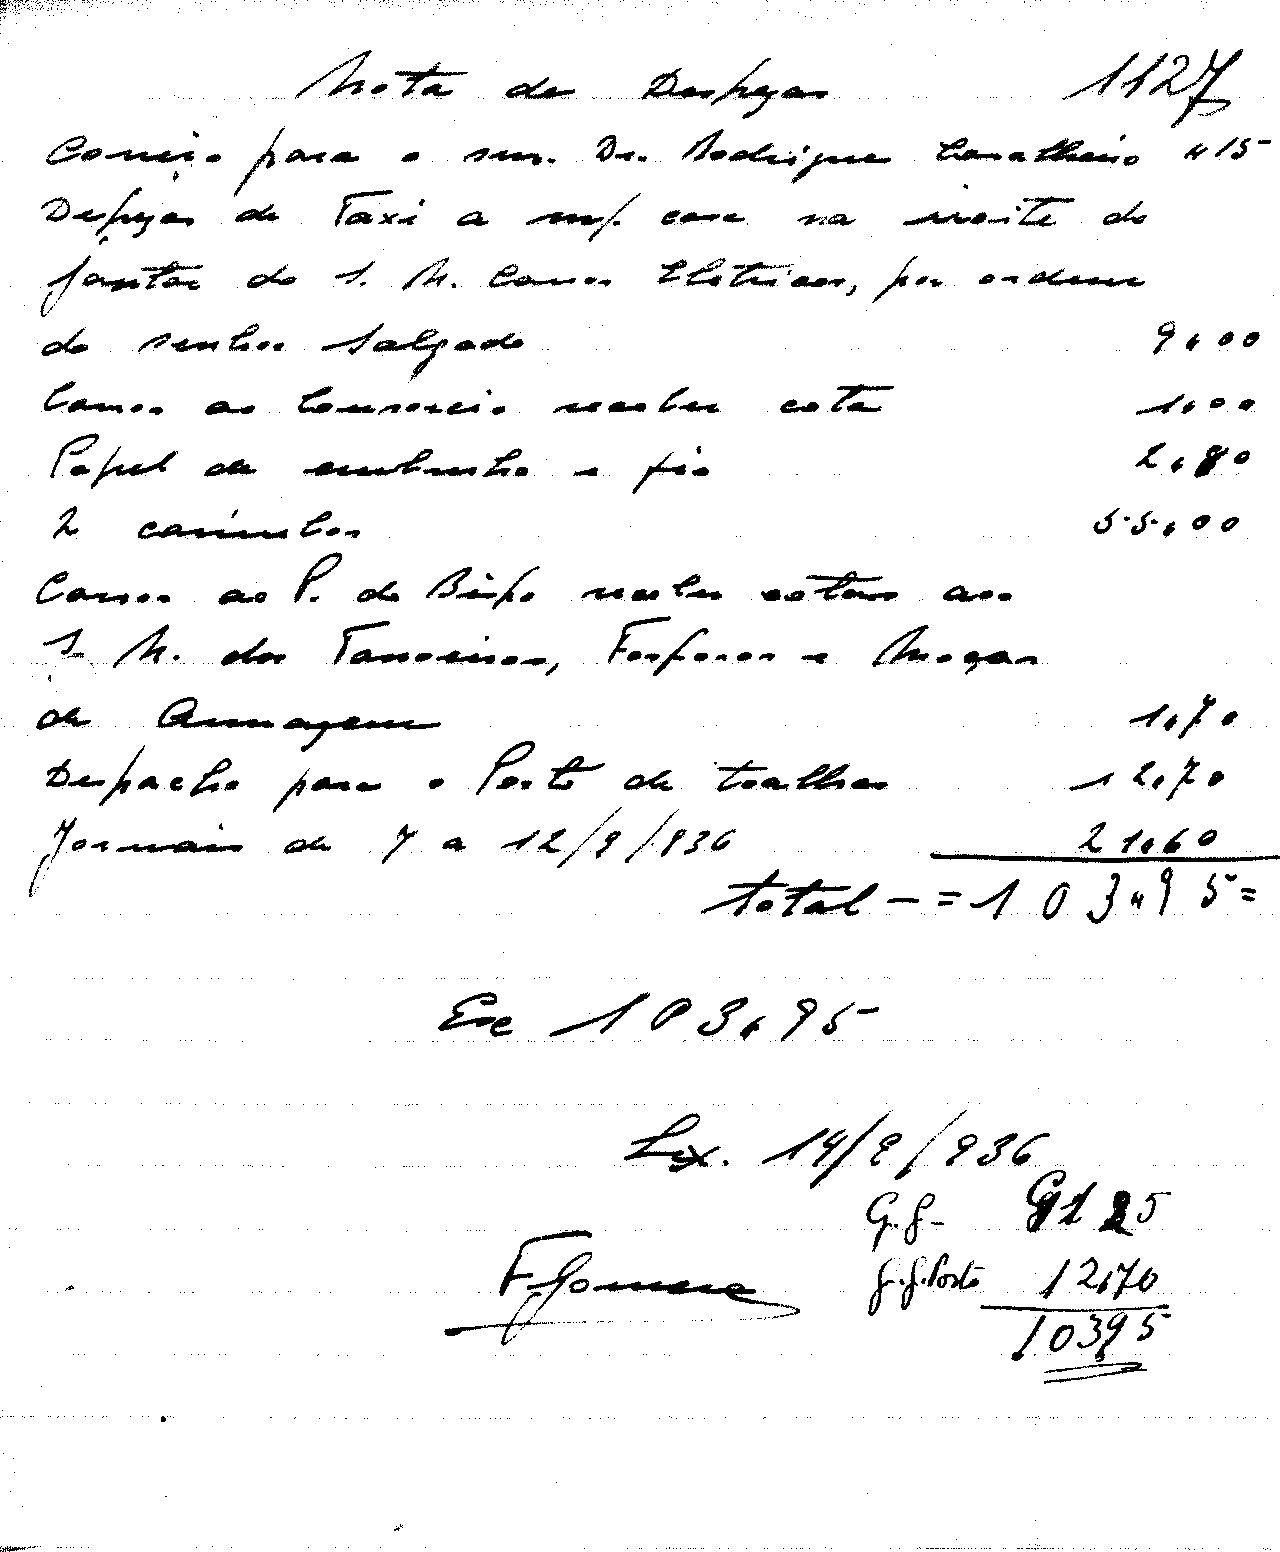 Nota de Despezas 1127
Correio para o snr. Dr. Rodrigues Cavalheiro "15
Despezas de Taxi a m/ casa na noite do
jantar do S. N. Carros Eletricos, por ordem
do senhor Salgado 9,00
Carros ao Comercio receber cota 1,00
Papel de embrulho e fio 2,80
2 carimbos 55,00
Carros ao P. do Bispo receber cotas aos
S. N. dos Tanoeiros, Fosforos e Moços
de Armazem 1,70
Despacho para o Porto de toalhas 12,70
Jornais de 7 a 12/9/936 21,60
total - = 103,95 =
Esc 103,95
Lix. 14/9/936
G. G. - 91 25
G. G. Porto 12,70
F Gomes
10395